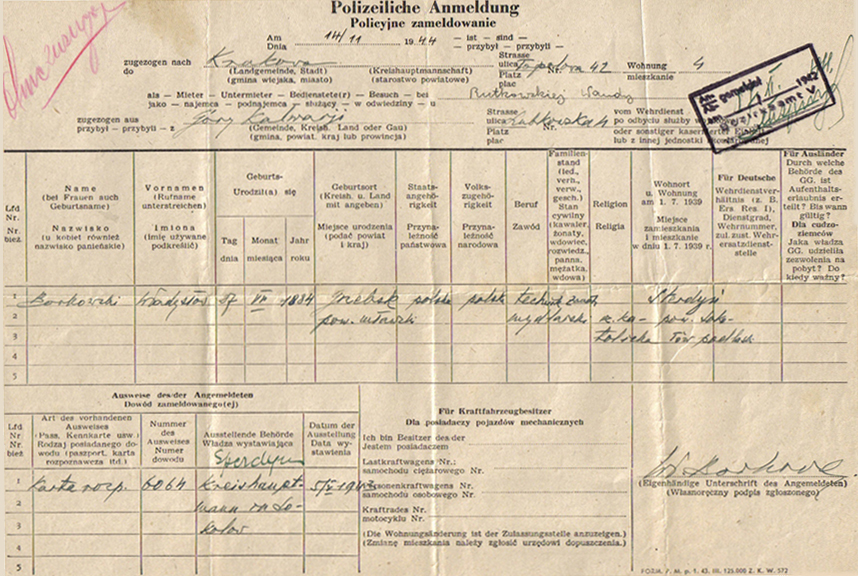 Polizeiliche Anmeldung
Policyjne zameldowanie
Am
Dnia 14/11 1944 — ist — sind —
— przybył — przybyli —
zugezogen nach
do Krakowa
(Landgemeinde, Stadt) (Kreishauptmannschaft)
(gmina wiejska, miasto) (starostwo powiatowe)
Strasse
ulica
Platz
plac
Nr. 42
Wohnung
mieszkanie 4
als — Mieter — Untermieter — Bedienstete(r) — Besuch — bei
jako — najemca — podnajemca — służący — w odwiedziny — u
Butkowskiej Wandy
zugezogen aus
przybył — przybyli — z Góry Kalwarji
(Gemeinde, Kreish. Land oder Gau)
(gmina, powiat. kraj lub prowincja)
Strasse
ulica
Platz
plac
Nr.
vom Wehrdienst
po odbyciu służby
oder sonstiger kasernierter
lub z innej jednostki
Lfd
Nr.
Nr.
bież.
Name
(bei Frauen auch
Geburtsname)
Nazwisko
(u kobiet również
nazwisko panieńskie)
Vornamen
(Rufname
unterstreichen)
Imiona
(imię używane
podkreślić)
Geburts-
Urodził(a) się
Tag
dnia
Monat
miesiąca
Jahr
roku
Geburtsort
(Kreish. u. Land
mit angeben)
Miejsce urodzenia
(podać powiat
i kraj)
Staats-
angehö-
rigkeit
Przyna-
leżność
państwowa
Volks-
zugehö-
rigkeit
Przyna-
leżność
narodowa
Beruf
Zawód
Familien-
stand
(led.,
verh.,
verw.,
gesch.)
Stan
cywilny
(kawaler,
żonaty,
wdowiec,
rozwiedz.,
panna,
mężatka,
wdowa)
Religion
Religia
Wohnort
u. Wohnung
am 1. 7. 1939
Miejsce
zamieszkania
i mieszkanie
w dniu 1.7. 1939 r.
Für Deutsche
Wehrdienstver-
hältnis (z. B.
Ers Res. I),
Dienstgrad,
Wehrnummer,
zul. zust. Wehr-
ersatzdienst-
stelle
Für Ausländer
Durch welche
Behörde des
GG. ist
Aufenthalts-
erlaubnis er-
teilt? Bis wann
gültig?
Dla cudzo-
ziemców
Jaka władza
GG. udzieliła
zezwolenia na
pobyt? Do
kiedy ważny?
1 Borkowski Władysław VII 1884 polska polska Sterdyń
2 pow. mławski mydlarski
3
4
5
Ausweise des/der Angemeldeten
Dowód zameldowanego(ej)
Lfd
Nr
Nr
bież
Art des vorhandenen
Ausweises
(Pass, Kennkarte usw)
Rodzaj posiadanego do-
wodu (paszport, karta
rozpoznawcza itd.)
Nummer
des
Ausweises
Numer
dowodu
Ausstellende Behörde
Władza wystawiająca
Datum der
Ausstellung
Data wy-
stawienia
1 Karta rozp. 6064 Kreishaupt-
2 mann
3
4
5
Für Kraftfahrzeugbesitzer
Dla posiadaczy pojazdów mechanicznych
Ich bin Besitzer des/der
Jestem posiadaczem
Lastkraftwagens Nr.:
samochodu ciężarowego Nr.
Personenkraftwagens Nr.
samochodu osobowego Nr.
Kraftrades Nr.
motocyklu Nr.
(Die Wohnungsänderung ist der Zulassungsstelle anzuzeigen.)
(Zmianę mieszkania należy zgłosić urzędowi dopuszczenia.)
(Eigenhändige Unterschrift des Angemeldeten)
(Własnoręczny podpis zgłoszonego)